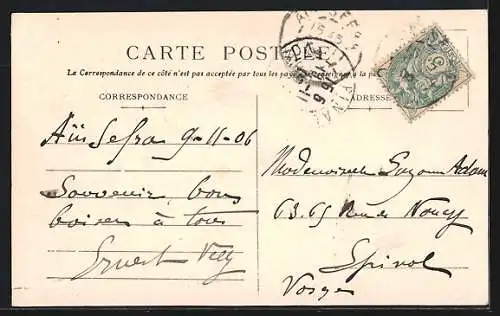 CARTE POSTALE
La Correspondance de ce côté n'est pas acceptée par tous les pays
CORRESPONDANCE
ADRESSE
Aïn Sefra 9-11-06
Souvenir bons
baisers à tous
Ernest
Mademoiselle Adam
63.65 Rue de Nancy
Epinal
Vosges